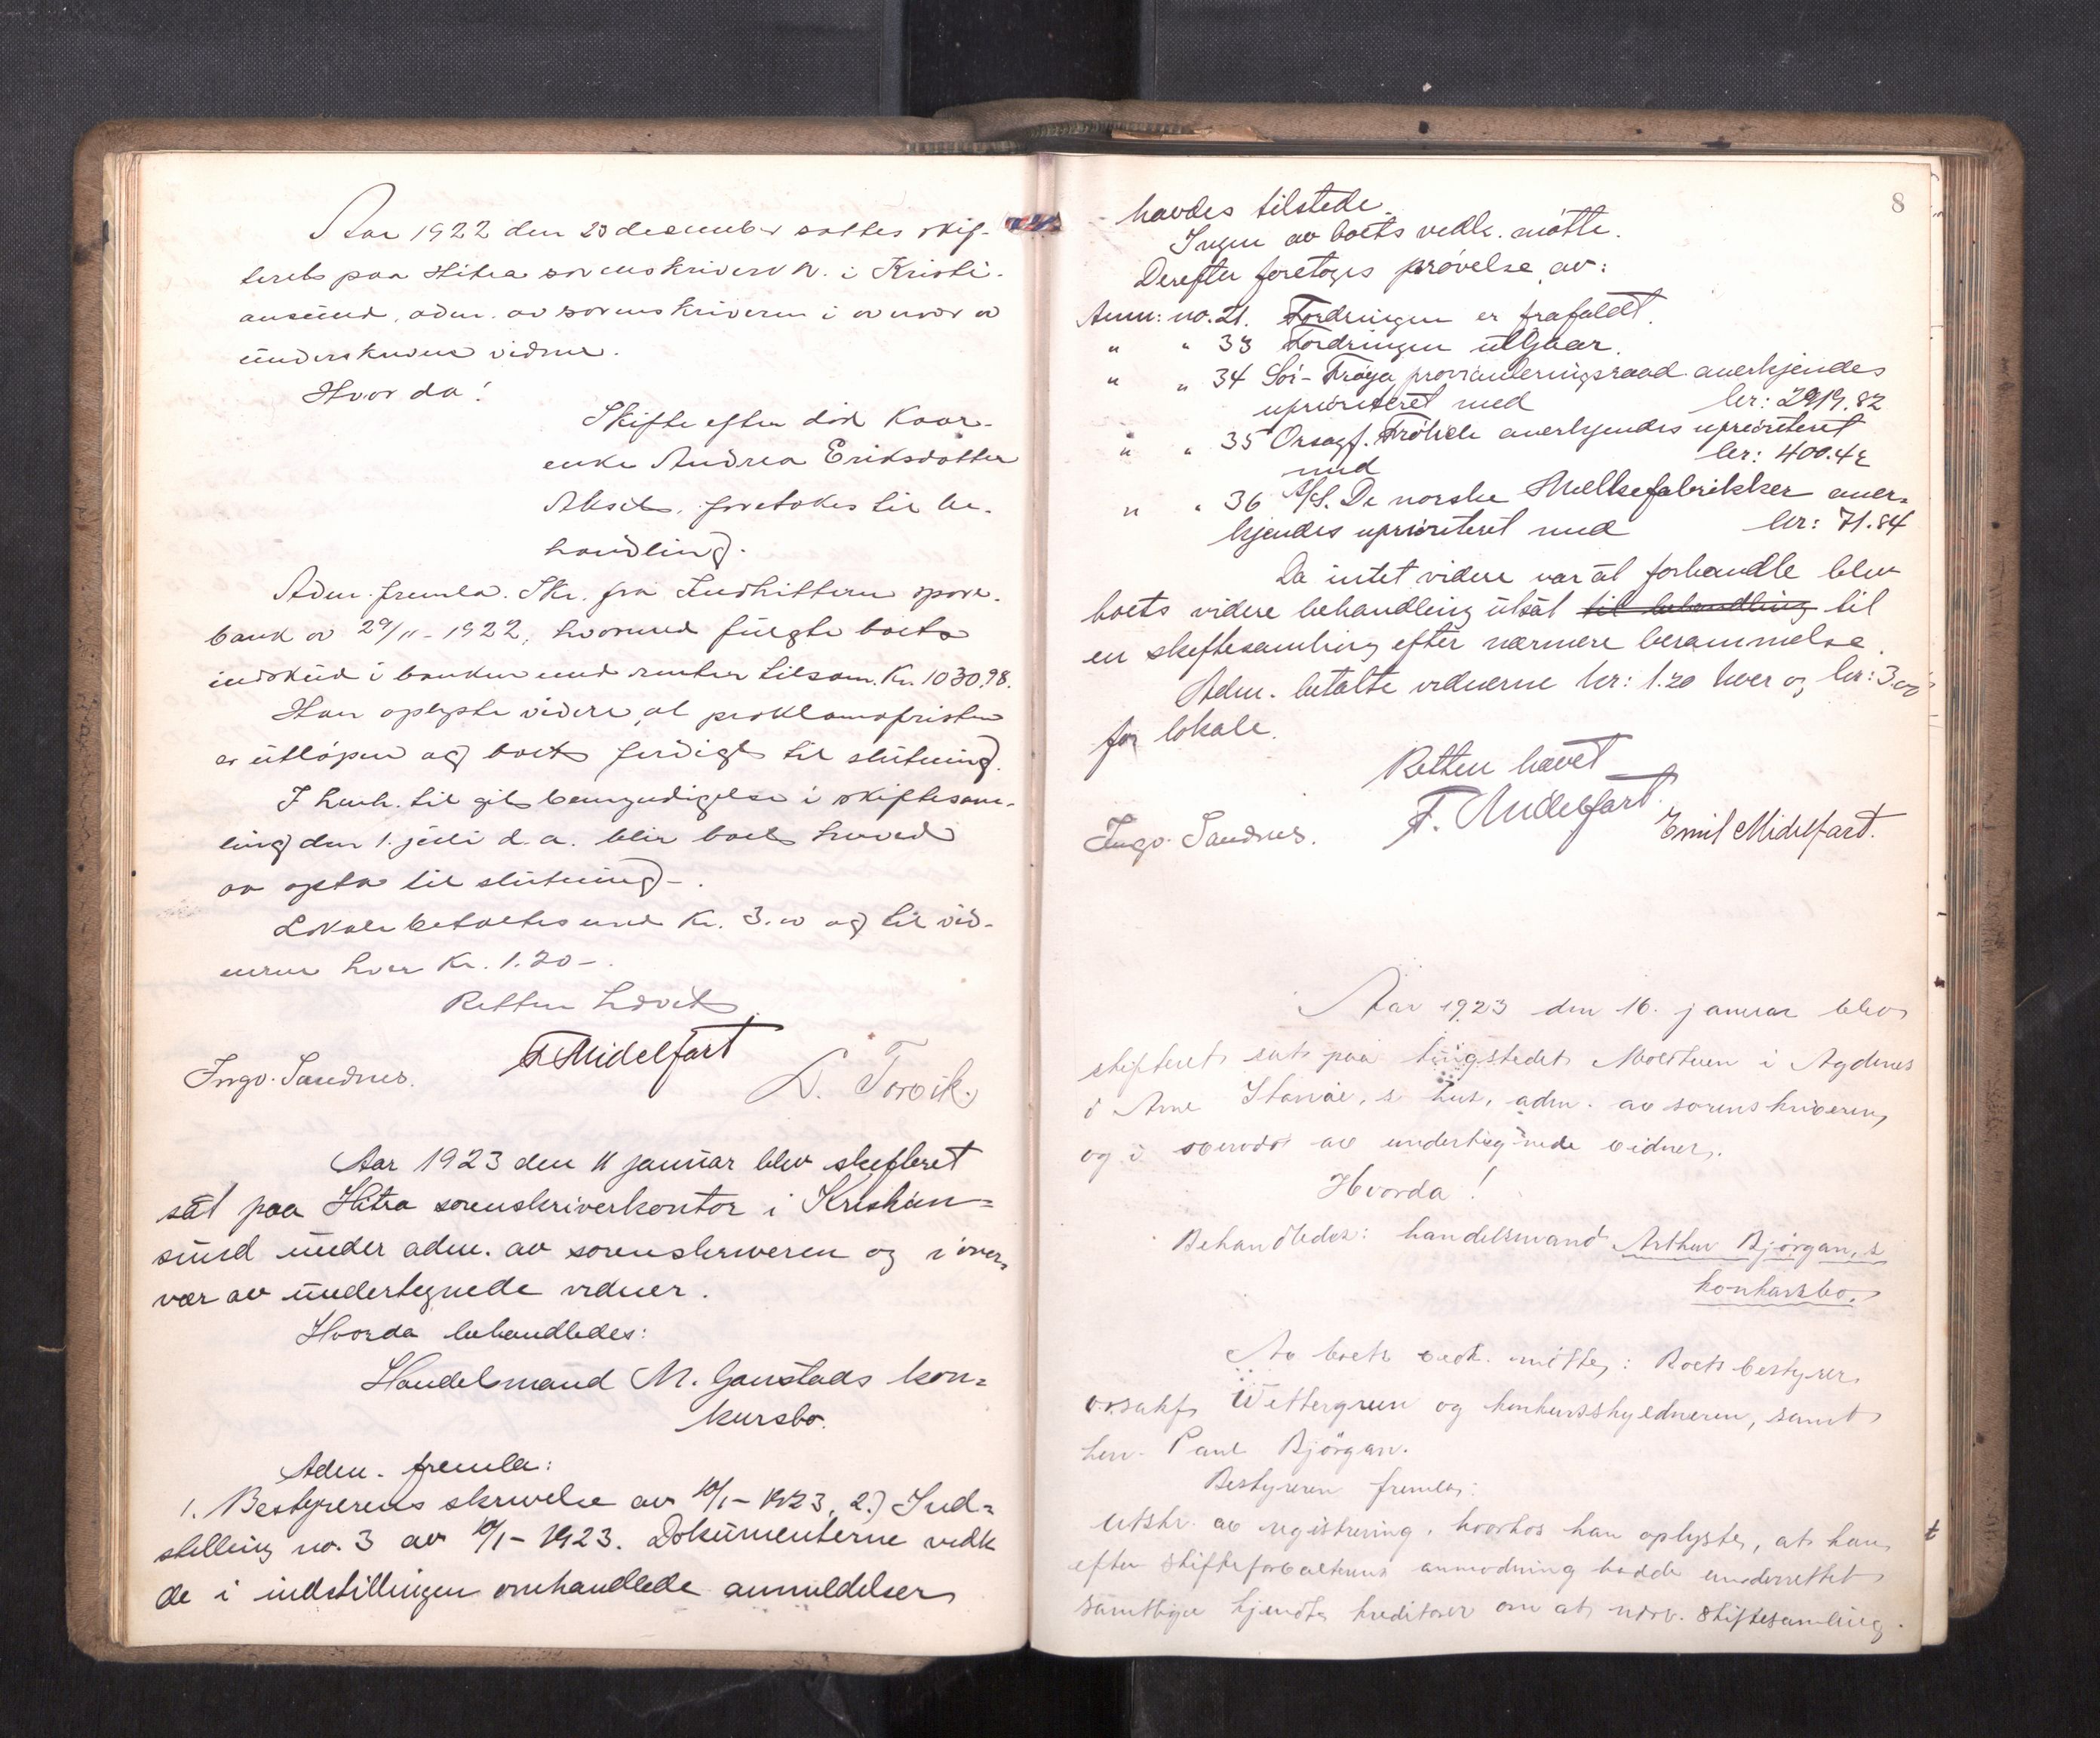 Aar 1922 den 23 december sattes skif-
teret paa Hitra sorenskriverk. i Kristi-
ansund, adm. av sorenskriveren i overvær av
underskrevne vidner.
Hvorda!
Skifte efter død Kaar-
enke Andrea Eriksdatter
foretokes til be-
handling.
Adm. fremla. Skr. fra Indhitteren spare-
bank av 29/11-1922, hvormed fulgte boets
indskud i banken med renter tilsam. Kr. 1030.98.
Han oplyste videre, at proklamafristen
er utløpen og boet færdigt til slutning.
I henh. til git bemyndigelse i skiftesam-
ling den 1. juli d.a. blir boet herved
at opta til slutning -.
Lokale betaltes med Kr. 3.00 og til vid-
nerne hver Kr. 1.20 -.
Retten hævet.
F. Midelfart
Ingv. Sandnes.
L. Torvik.
Aar 1923 den 11 januar blev skifteret
sat paa Hitra sorenskriverkontor i Kristian=
sund under adm. av sorenskriveren og i over-
vær av undertegnede vidner.
Hvorda behandledes:
Handelsmand M. Gaustads kon=
kursbo.
Adm. fremla:
1. Bestyrerens skrivelse av 10/1-1923, 2.) Ind=
stilling no. 3 av 10/1-1923. Dokumenterne vedk
de i indstillingen omhandlede anmeldelser
8
havdes tilstede.
Ingen av boets vedk. møtte.
Derefter foretoges prøvelse av:
Anm: no. 21. Fordringen er frafaldt.
" " 33 Fordringen utgaar.
" " 34 Sør-Frøya provianteringsraad anerkjendes
uprioriteret med kr: 2919.82
" " 35 Orsagf. Frøhele anerkjendes uprioriteret
med kr: 400.42
" " 36 A/S. De norske Melkefabrikker aner-
kjendes uprioriteret med kr: 71.84
Da intet videre var at forhandle blev
boets videre behandling utsat til behandling til
en skiftesamling efter nærmere berammelse.
Adm. betalte vidnerne kr: 1.20 hver og kr: 3.00
for lokale.
Retten hævet
F. Midelfart.
Ingv. Sandnes.
Emil Midelfart.
Aar 1923 den 16. januar blev
skifteret sat paa tingstedet Moldtuen i Agdenes
i Arne s hus, adm. av sorenskriveren,
og i overvær av undertegnede vidner.
Hvorda!
Behandledes: handelsmand Arthur Bjørgan, s
konkursbo.
Av boets vedk. møtte: Boets bestyrer
o.r.sakf. Wettergreen og konkursskyldneren, samt
hr. Paul Bjørgan.
Bestyreren fremla:
Utskr. av registrering, hvorhos han oplyste, at han
efter skifteforvalterens anmodning hadde underrettet
samtlige kjendte kreditorer om at nærv. skiftesamling.
t